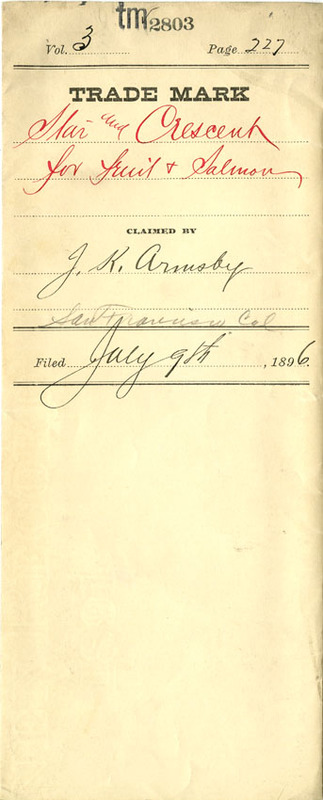 tm2803
Vol. 3 Page 227
TRADE MARK
Star and Crescent
for fruit & Salmon
CLAIMED BY
J. K. Armsby
San Francisco Cal
Filed July 9th, 1896.